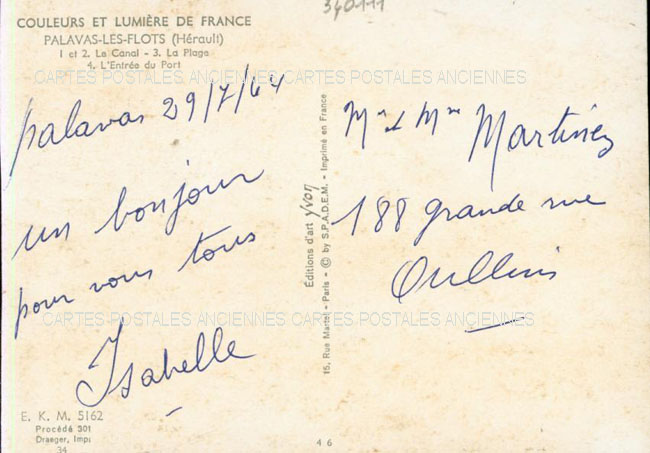 340111
COULEURS ET LUMIÈRE DE FRANCE
PALAVAS-LES-FLOTS (Hérault)
1 et 2. Le Canal - 3. La Plage
4. L'Entrée du Port
CARTES POSTALES ANCIENNES CARTES POSTALES ANCIENNES
palavas 29/7/64
un bonjour
pour vous tous
Isabelle
E. K. M. 5162
Procédé 301
Draeger, Imp:
34
Éditions d'art yvon
15, Rue Martel - Paris - © by S.P.A.D.E.M. - Imprimé en France
Mr & Mme Martinez
188 grande rue
Oullins
CARTES POSTALES ANCIENNES CARTES POSTALES ANCIENNES
46